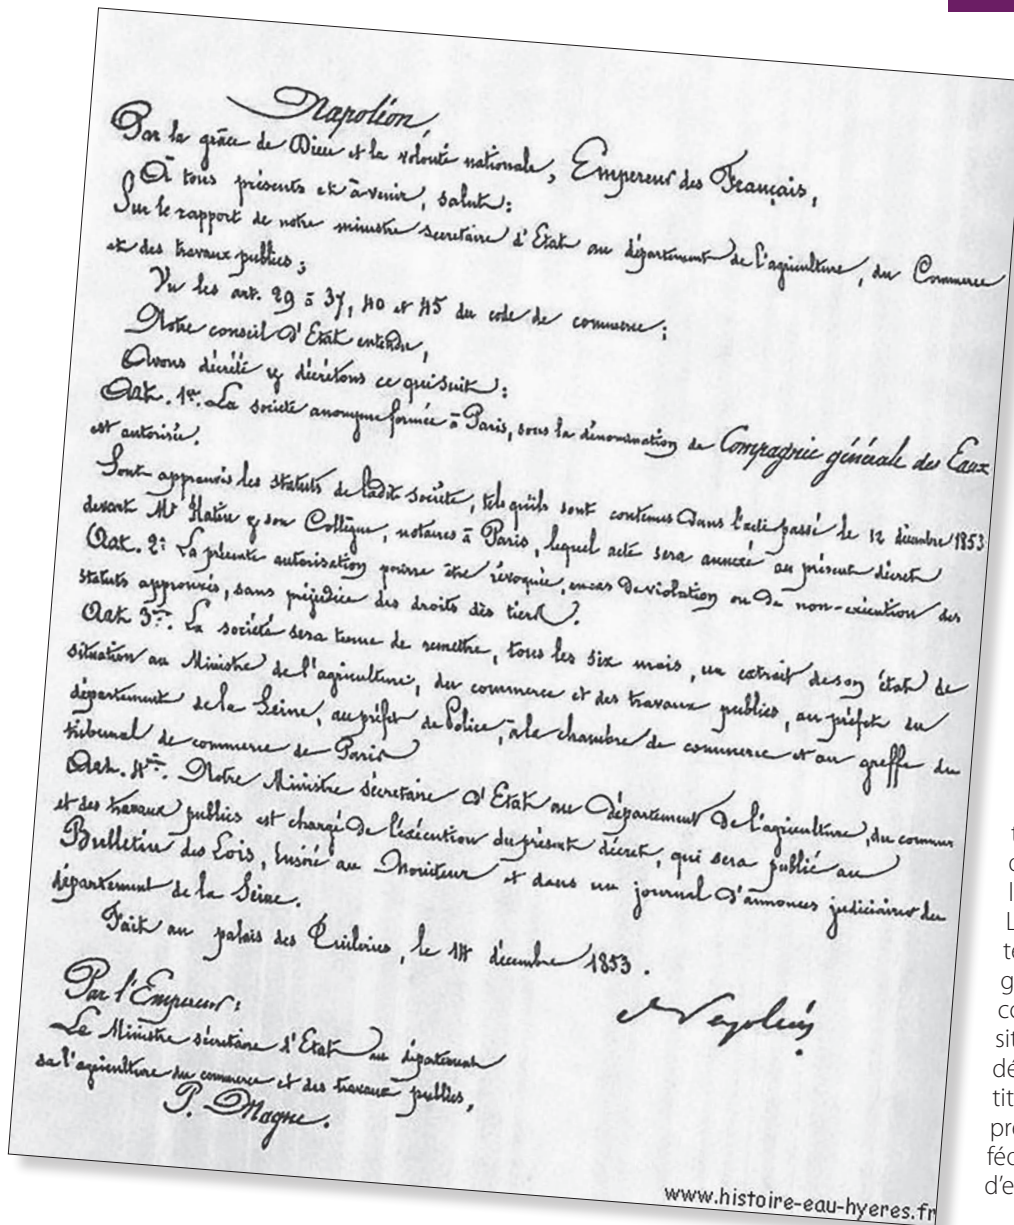 Napoléon,
Par la grâce de Dieu et la volonté nationale, Empereur des Français,
À tous présents et à venir, salut:
Sur le rapport de notre ministre secretaire d'Etat au département de l'agriculture, du Commerce
et des travaux publics;
Vu les art. 29 à 37, 40 et 45 du code de commerce;
Notre conseil d'Etat entendu,
Avons décrété et décrétons ce qui suit:
Art. 1er. La societé anonyme formée à Paris, sous la dénomination de Compagnie générale des Eaux
est autorisée.
Sont approuvés les statuts de ladite société, tels qu'ils sont contenus dans l'acte passé le 12 décembre 1853
devant Me et son Collègue, notaires à Paris, lequel acte sera annexé au présent décret
Art. 2: La présente autorisation pourra être révoquée, en cas de violation ou de non-exécution des
statuts approuvés, sans préjudice des droits des tiers.
Art. 3me. La société sera tenue de remettre, tous les six mois, un extrait de son état de
situation au Ministre de l'agriculture, du commerce et des travaux publics, au préfet du
département de la Seine, au préfet de Police, à la chambre de commerce et au greffe du
tribunal de commerce de Paris
Art. 4me. Notre Ministre sécretaire d'Etat au département de l'agriculture, du commerce
et des travaux publics est chargé de l'éxécution du présent décret, qui sera publié au
Bulletin des Lois, Inséré au Moniteur et dans un journal d'annonces judiciaires du
département de la Seine.
Fait au palais des Tuileries, le 14 décembre 1853.
Napoléon
Par l'Empereur:
Le Ministre sécretaire d'Etat au département
de l'agriculture du commerce et des travaux publics,
P. Magne.
www.histoire-eau-hyeres.fr